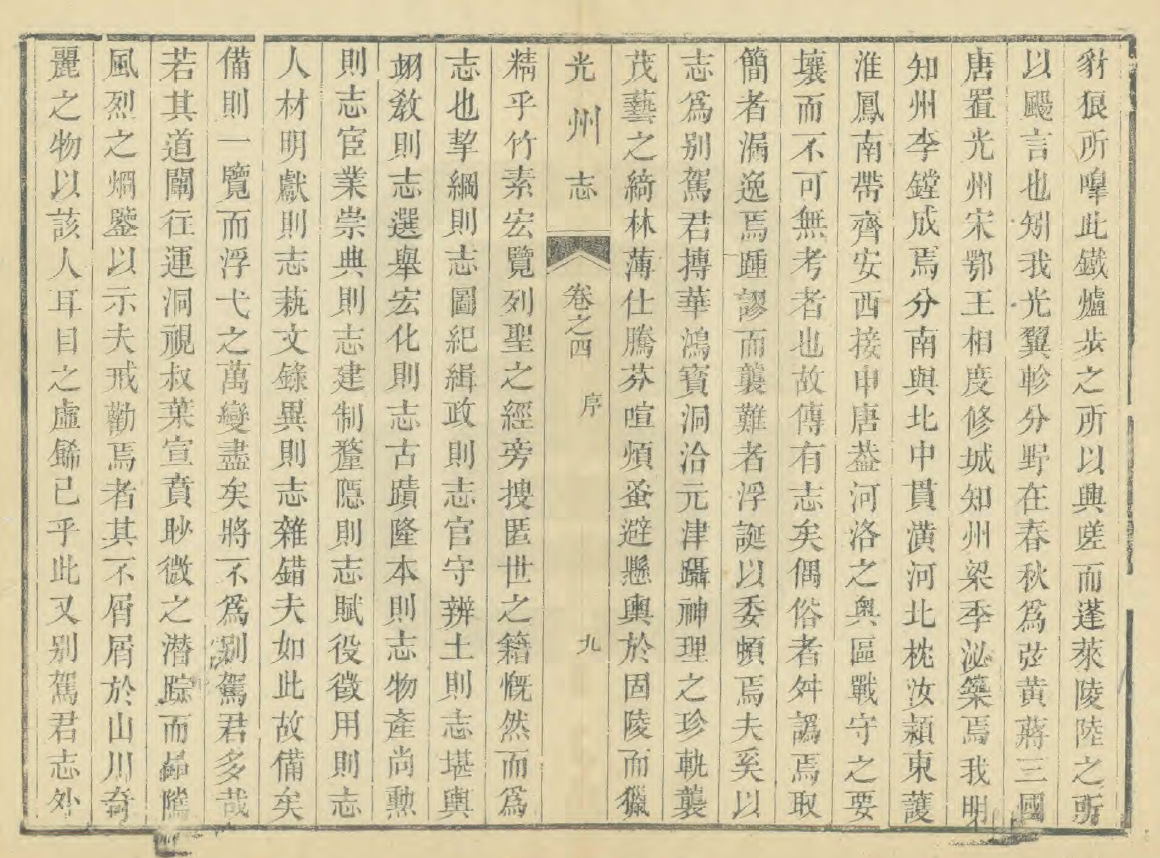 豺狼所嘷此鐵爐步之所以興嗟而蓬萊陵陸之所
以颺言也矧我光翼軫分野在春秋爲弦黃蔣三國
唐置光州宋鄂王相度修城知州梁季泌築焉我明
知州李鏜成焉分南與北中貫潢河北枕汝潁東護
淮鳳南帶齊安西接申唐葢河洛之奧區戰守之要
壤而不可無考者也故傳有志矣偶俗者舛譌焉取
簡者漏逸焉踵謬而襲難者浮誕以委頓焉夫奚以
志爲别駕君摶華鴻寳洞洽元津躡神理之珍軌襲
茂藝之綺林薄仕騰芬喧煩蚤避懸輿於固陵而獵
光州志 卷之四 序 九
精乎竹素宏覽列聖之經旁搜匿世之籍慨然而爲
志也挈綱則志圖紀緝政則志官守辨土則志堪輿
翊敎則志選舉宏化則志古蹟隆本則志物產尚勲
則志宦業崇典則志建制釐隱則志賦役徵用則志
人材明獻則志蓺文錄異則志雜錯夫如此故備矣
備則一覽而浮弋之萬變盡矣將不爲别駕君多哉
若其道闡往運洞視叔葉宣賁眇微之潛踪而隲
風烈之烱鑒以示夫戒勸焉者其不屑屑於山川奇
麗之物以該人耳目之虛餙已乎此又别駕君志外